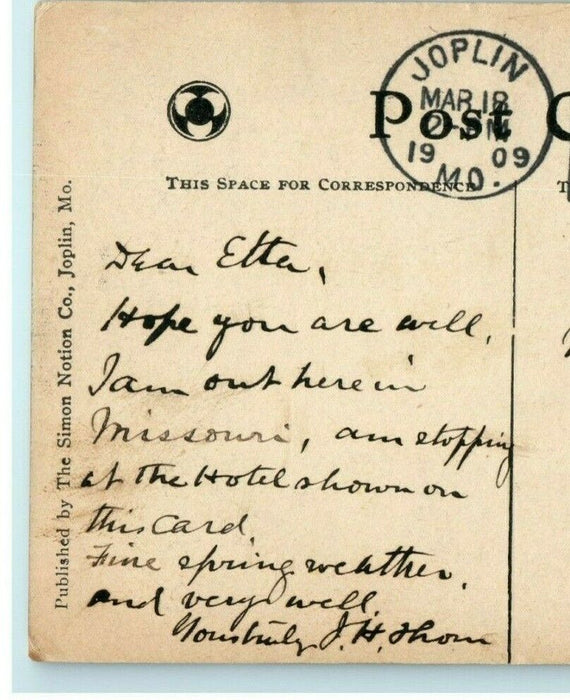 JOPLIN
MAR 18
19 09
MO.
Post C
THIS SPACE FOR CORRESPONDENCE
T
Published by The Simon Notion Co., Joplin, Mo.
Dear Etta,
Hope you are well,
I am out here in
Missouri, am stopping
at the Hotel shown on
this Card
Fine spring weather,
and very well.
Yours truly J. H. Thom